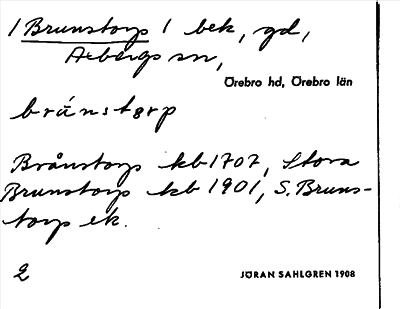 / Brunstorp / bek, gd,
Axbergs sn,
Örebro hd, Örebro län
brúnstǝrp
Brånstorp kb 1707, Stora
Brunstorp kb 1901, S. Bruns-
torp ek.
2
JÖRAN SAHLGREN 1908